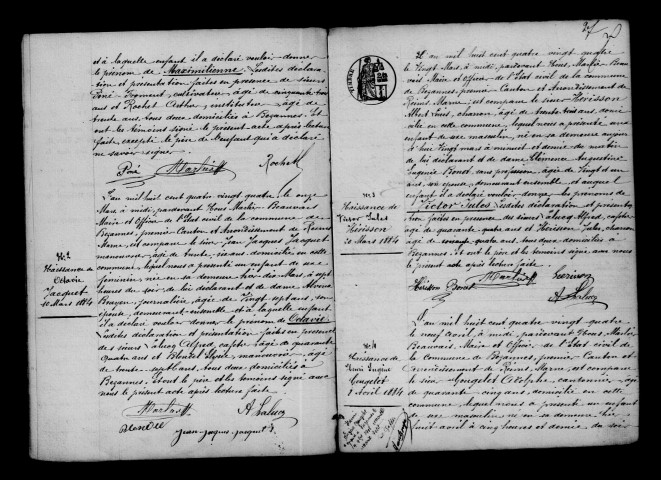 et à laquelle enfant il a déclaré vouloir donner
le prénom de Maximilienne Lesdites déclara
tion et présentation faites en présence de sieurs
Piné Froment, cultivateur, âgé de cinquante trois
ans et Rochet Arthur, instituteur, âgé de
trente ans, tous deux domiciliés à Bezannes. Et
ont les témoins signé le présent acte après lecture
faite, excepté le père de l'enfant qui a déclaré
ne savoir signer
Piné Martin Rochet
N° 2
Naissance de
Octavie
Jacquet
10 Mars 1884
L'an mil huit cent quatre vingt quatre, le onze
Mars à midi, pardevant Nous Martin Beauvais
Maire et Officier de l'Etat civil de la commune de
Bezannes, premier Canton et Arrondissement de Reims
Marne, est comparu le sieur Jean Jacques Jacquet
manouvrier, âgé de trente six ans, domicilié en cette
commune, lequel nous a présenté un enfant de sexe
féminin, né en sa demeure hier dix Mars à sept
heures de soir de lui déclarant et de dame
journalière, âgée de Vingt sept ans, son
épouse, demeurant ensemble, et à laquelle enfant
il a déclaré vouloir donner le prénom de Octavie
Lesdites déclaration et présentation faites en présence
des sieurs Lalucq Alfred, âgé de quarante
quatre ans et Blondel Elysée, manouvrier, âgé
de trente sept ans, tous deux domiciliés à
Bezannes. Et ont le père et les témoins signé avec
nous le présent acte après lecture faite
Martin A. Lalucq
Blondel Jean-Jacques Jacquet
27
L'an mil huit cent quatre vingt quatre
le Vingt Mars, à midi, pardevant Nous, Martin Beau
vais Maire et Officier de l'Etat civil de la commune
de Bezannes, premier Canton et Arrondissement de
Reims, Marne, est comparu le sieur Hérisson
Albert, charron, âgé de trente trois ans, domi
cilié en cette commune, lequel nous a présenté un
enfant de sexe masculin, né en sa demeure aujour
d'hui Vingt mars à minuit et demie du matin
de lui déclarant et de dame Clémence Augustine
Eugénie Benoit, sans profession, âgée de Vingt
ans, son épouse, demeurant ensemble, et auquel
enfant il a déclaré vouloir donner les prénoms de
Victor Jules Lesdites déclaration et présenta
tion faites en présence des sieurs Lalucq Alfred,
âgé de quarante quatre ans et Hérisson Jules, charron
âgé de ans tous deux domiciliés à
Bezannes, et ont le père et les témoins, signé avec nous
le présent acte après lecture faite
Hérisson Benoit Martin Hérisson
A. Lalucq
N° 3
Naissance de
Victor Jules
Hérisson
20 Mars 1884
N° 4
Naissance de
Henri Eugène
Gougelet
8 Avril 1884
L'an mil huit cent quatre vingt quatre
le neuf avril, à midi, pardevant Nous Martin
Beauvais, Maire et Officier de l'Etat civil de
la commune de Bezannes, premier Canton et
Arrondissement de Reims, Marne, est comparu
le sieur Gougelet Adolphe, cantonnier, âgé
de quarante cinq ans, domicilié en cette
commune, lequel nous a présenté un enfant
de sexe masculin né en sa demeure hier
huit avril à cinq heures et demie du soir